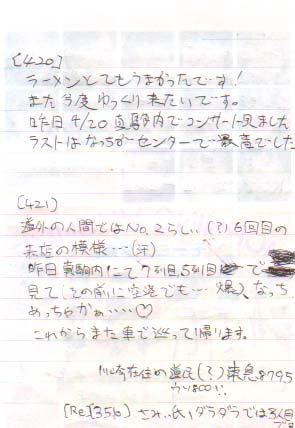 [420]
ラーメンとてもうまかったです！
また今度ゆっくり来たいです。
昨日 4/20 真駒内でコンサート見ました
ラストはなっちがセンターで最高でした
[421]
道外の人間ではNo.2らしい(?)6回目の
来店の模様…(汗)
昨日真駒内にて7列目,5列目で
見て(その前に空港でも…爆)、なっち
めっちゃかぁ……♡
これからまた車で巡って帰ります。
川崎在住の道民(?)東急8795
[Re][356] さみぃ氏,ダラダラでは3人目
です